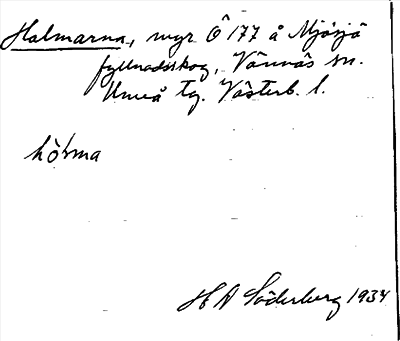 Halmarna, myr Ö 177 å Mjösjö
fyllnadsskog, Vännäs sn.
Umeå tg. Västerb. l.
hòḷma
H A Söderberg 1934